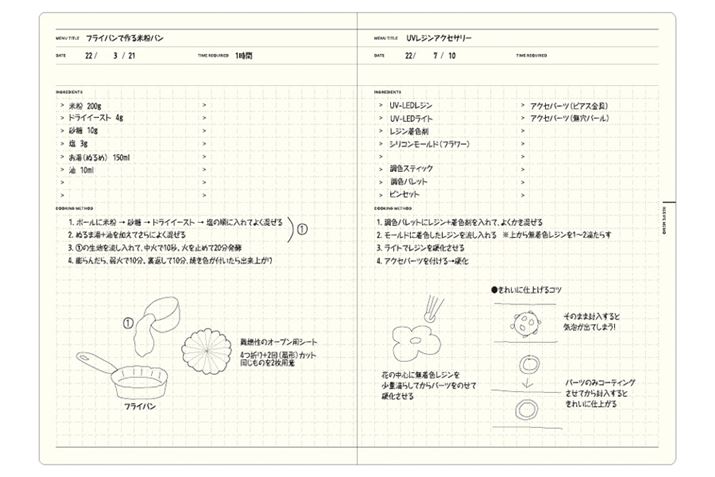 MENU TITLE フライパンで作る米粉パン
DATE 22/ 3 / 21 TIME REQUIRED 1時間
INGREDIENTS
> 米粉 200g >
> ドライイースト 4g >
> 砂糖 10g >
> 塩 3g >
> お湯(ぬるめ) 150ml >
> 油 10ml >
> >
> >
COOKING METHOD
1. ボールに米粉 → 砂糖 → ドライイースト → 塩の順に入れてよく混ぜる
2. ぬるま湯+油を加えてさらによく混ぜる
①
3. ①の生地を流し入れて、中火で10秒。火を止めて20分発酵
4. 膨らんだら、弱火で10分。裏返して10分。焼き色が付いたら出来上がり
①
難燃性のオーブン用シート
4つ折り+2回(扇形)カット
同じものを2枚用意
フライパン
MENU TITLE UVレジンアクセサリー
DATE 22/ 7 / 10 TIME REQUIRED
INGREDIENTS
> UV-LEDレジン > アクセパーツ(ピアス金具)
> UV-LEDライト > アクセパーツ(無穴パール)
> レジン着色剤 >
> シリコンモールド(フラワー) >
> >
> 調色スティック >
> 調色パレット >
> ピンセット >
COOKING METHOD
1. 調色パレットにレジン+着色剤を入れて、よくかき混ぜる
2. モールドに着色したレジンを流し入れる ※上から無着色レジンを1〜2滴たらす
3. ライトでレジンを硬化させる
4. アクセパーツを付ける→硬化
●きれいに仕上げるコツ
そのまま封入すると
気泡が出てしまう!
花の中心に無着色レジンを
少量垂らしてからパーツをのせて
硬化させる
パーツのみコーティング
させてから封入すると
きれいに仕上がる
RECIPE MEMO